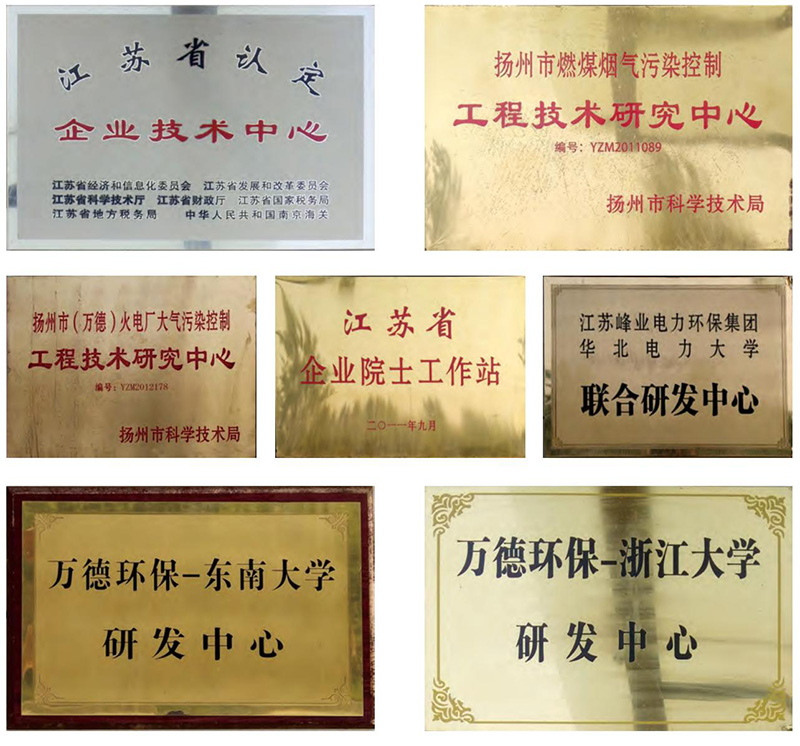 江苏省认定
企业技术中心
江苏省经济和信息化委员会 江苏省发展和改革委员会
江苏省科学技术厅 江苏省财政厅 江苏省国家税务局
江苏省地方税务局 中华人民共和国南京海关
扬州市燃煤烟气污染控制
工程技术研究中心
编号：YZM2011089
扬州市科学技术局
扬州市（万德）火电厂大气污染控制
工程技术研究中心
编号：YZM2012178
扬州市科学技术局
江苏省
企业院士工作站
二〇一一年九月
江苏峰业电力环保集团
华北电力大学
联合研发中心
万德环保-东南大学
研发中心
万德环保-浙江大学
研发中心